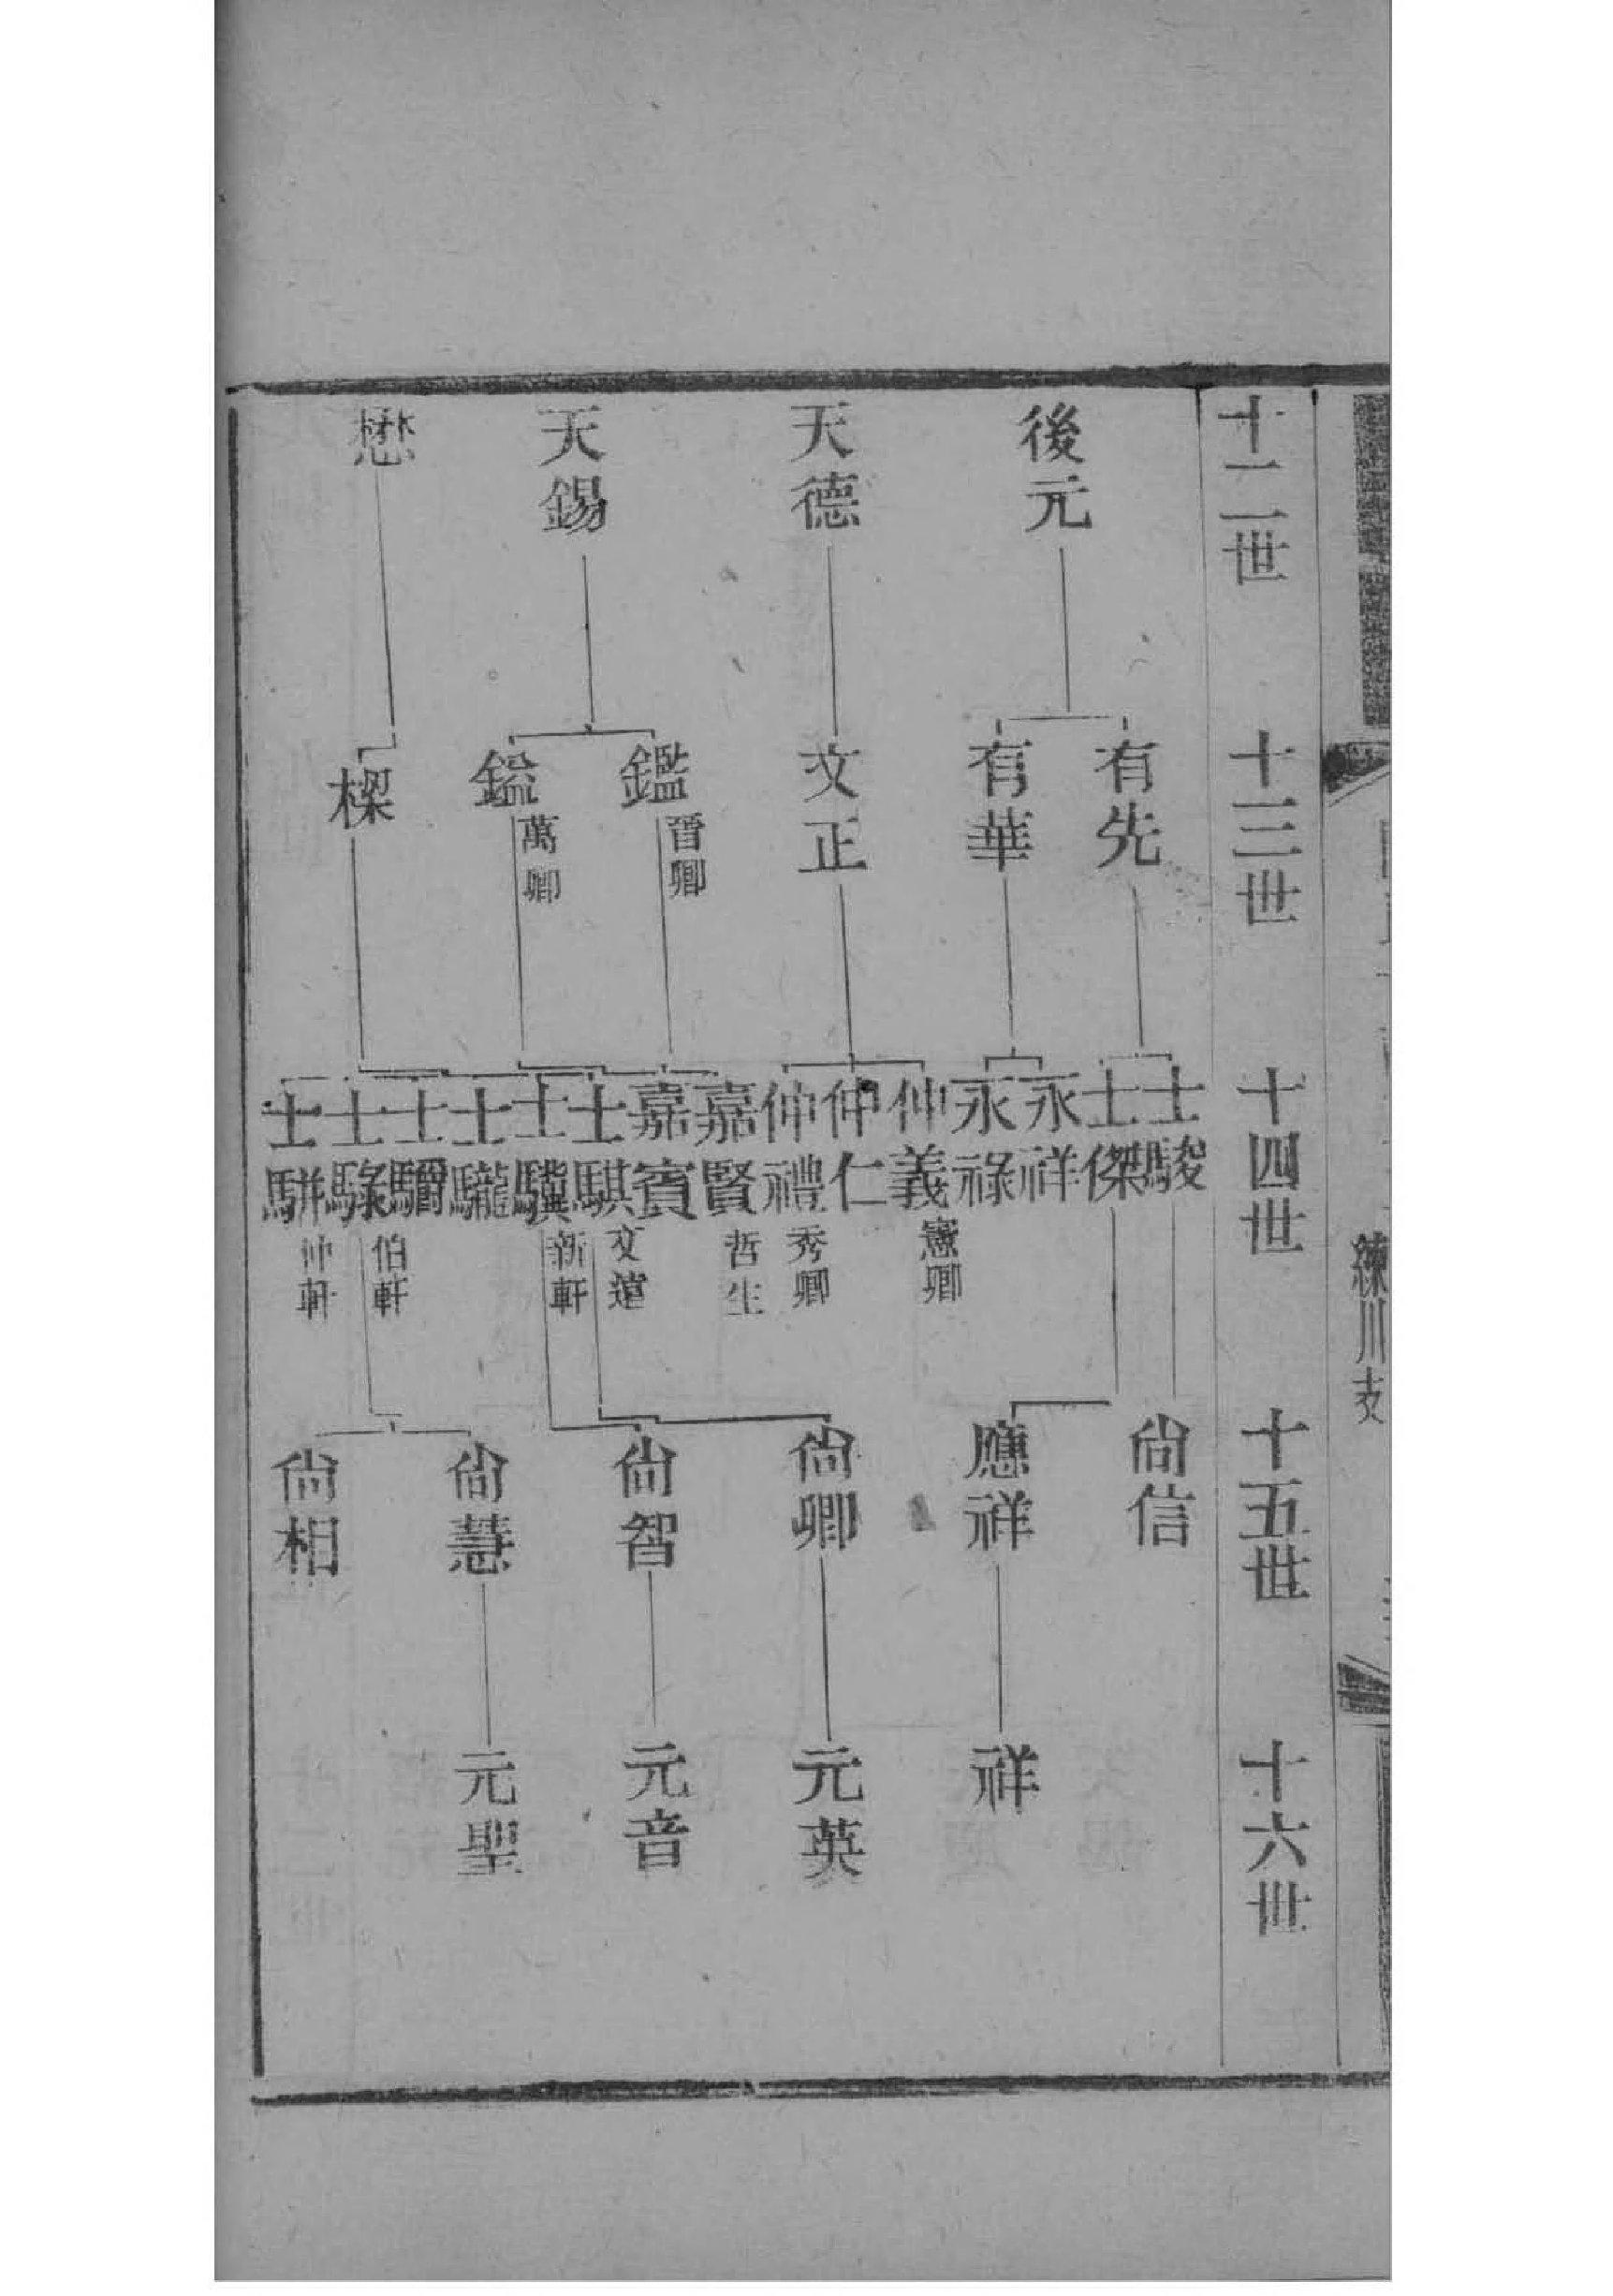 練川支
十二世
後元
天德
天錫
懋
十三世
有先
有華
文正
鑑
晋卿
鎰
萬卿
樑
十四世
士駿
士傑
永祥
永祿
仲義
憲卿
仲仁
仲禮
秀卿
嘉賢
哲生
嘉賓
士騏
文遠
士驥
新軒
士驪
士驑
伯軒
士騄
仲軒
士騈
十五世
尙信
應祥
尙卿
尙智
尙慧
尙相
十六世
祥
元英
元音
元聖